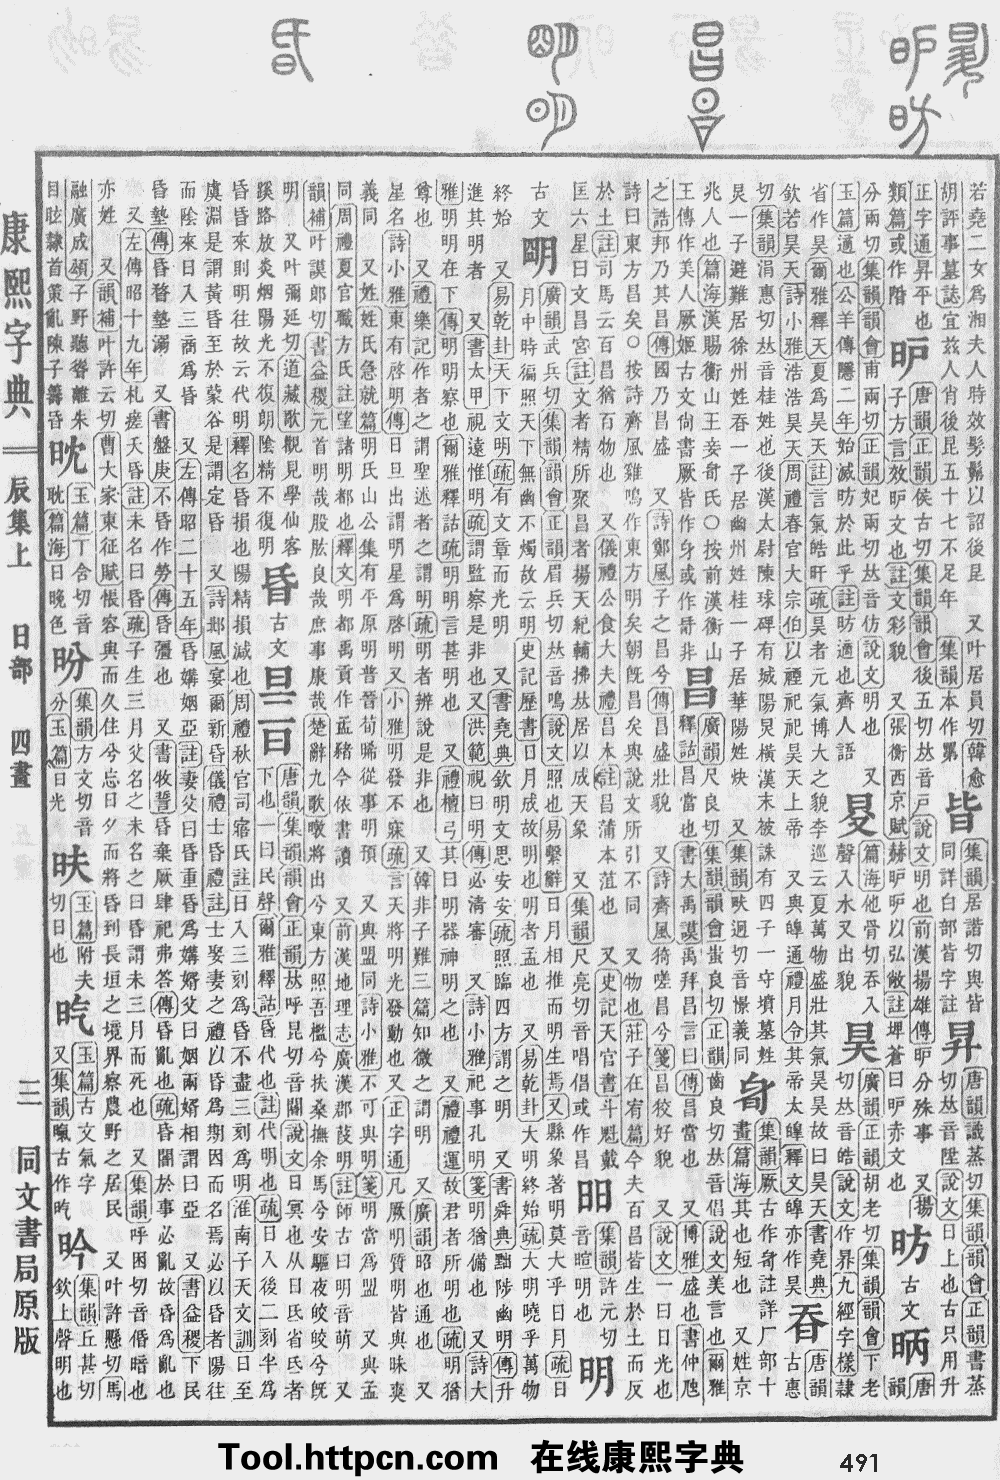 康熙字典 辰集上 日部 四畫 三 同文書局原版
若堯二女女爲湘夫人時效 以詔後昆 又叶居員切韓愈
胡評事墓誌宜茲人肖後昆五十七不足年 集韻本作
皆 集韻居諧切與皆同詳白部皆字註
昇 唐韻識蒸切集韻韻會正韻書蒸切𠀤音陞說文日上也古只用升
正字通昇平也
類篇或作阩
昈 唐韻正韻侯古切集韻韻會後五切𠀤音戸說文明也前漢揚雄傳昈分殊事 又揚子方言效昈文也註文彩貌 又張衡西京賦赫昈昈以弘敞註埤蒼曰昈赤文也
昉 古文昞 唐韻分兩切集韻韻會甫兩切正韻妃兩切𠀤音仿說文明也 又玉篇適也公羊傳隱二年始滅昉於此乎註昉適也齊人語
旻 篇海他骨切吞入聲入水又出貌
昊 廣韻正韻胡老切集韻韻會下老切𠀤音皓說文作界九經字樣隸省作昊爾雅釋天夏爲昊天註言氣皓旰疏昊者元氣博大之貌李巡云夏萬物盛壯其氣昊昊故曰昊天書堯典欽若昊天詩小雅浩浩昊天周禮春官大宗伯以禋祀祀昊天上帝 又與皡通禮月令其帝太皡釋文皡亦作昊
昋 唐韻古惠切集韻涓惠切𠀤音桂姓也後漢太尉陳球碑有城陽炅橫漢末被誅有四子一守墳墓姓炅一子避難居徐州姓昋一子居幽州姓桂一子居華陽姓炔 又集韻畎迥切音憬義同
集韻厥古作 註詳厂部十畫 篇海其也短也 又姓京兆人也篇海漢賜衡山王妾奇氏〇按前漢衡山王傳作美人厥姬古文尙書厥皆作 或作 非
昌 廣韻尺良切集韻韻會蚩良切正韻齒良切𠀤音倡說文美言也爾雅釋詁昌當也書大禹謨禹拜昌言曰傳昌當也 又博雅盛也書仲虺之誥邦乃其昌傳國乃昌盛 又詩鄭風子之昌兮傳昌盛壯貌 又詩齊風猗嗟昌兮箋昌狡好貌 又說文一曰日光也詩曰東方昌矣〇按詩齊風雞鳴作東方明矣朝旣昌矣與說文所引不同 又物也莊子在宥篇今夫百昌皆生於土而反於土註司馬云百昌猶百物也 又儀禮公食大夫禮昌本註昌蒲本菹也 又史記天官書斗魁戴匡六星曰文昌宮註文者精所聚昌者揚天紀輔拂𠀤居以成天象 又集韻尺亮切音唱倡或作昌
昍 集韻許元切音暄明也
明 古文朙 廣韻武兵切集韻韻會正韻眉兵切𠀤音鳴說文照也易繫辭日月相推而明生焉又縣象著明莫大乎日月疏日月中時徧照天下無幽不燭故云明 史記歷書日月成故明也明者孟也 又易乾卦大明終始疏大明曉乎萬物終始 又易乾卦天下文明疏有文章而光明 又書堯典欽明文思安安疏照臨四方謂之明 又書舜典黜陟幽明傳升進其明者 又書太甲視遠惟明疏謂監察是非也又洪範視曰明傳必淸審 又詩小雅祀事孔明箋明猶備也 又詩大雅明明在下傳明明察也爾雅釋詁疏明明言甚明也 又禮檀弓其曰明器神明之也 又禮禮運故君者所明也疏明猶尊也 又禮樂記作者之謂聖述者之謂明疏明者辨說是非也 又韓非子難三篇知微之謂明 又廣韻昭也通也 又星名詩小雅東有啓明傳日旦出謂明星爲啓明又小雅明發不寐疏言天將明光發動也又正字通凡厥明質明皆與昧爽義同 又姓姓氏急就篇明氏山公集有平原明普晉荀晞從事明預 又與盟同詩小雅不可與明箋明當爲盟 又與孟同周禮夏官職方氏註望諸明都也釋文明都禹貢作孟豬今依書讀 又前漢地理志廣漢郡葭明註師古曰明音萌 又韻補叶謨郎切書益稷元首明哉股肱良哉庶事康哉楚辭九歌暾將出兮東方照吾檻兮扶桑撫余馬兮安驅夜皎皎兮旣明 又叶彌延切道藏歌觀見學仙客蹊路放炎烟陽光不復朗陰精不復明
昏 古文旦 唐韻集韻韻會正韻𠀤呼昆切音閽說文日冥也从日氐省氐者下也一曰民聲爾雅釋詁昏代也註代明也疏日入後二刻半爲昏昏來則明往故云代明釋名昏損也陽精損減也周禮秋官司寤氏註日入三刻爲昏不盡三刻爲明淮南子天文訓日至虞淵是謂黃昏至於蒙谷是謂定昏 又詩邶風宴爾新昏儀禮士昏禮註士娶妻之禮以昏爲期因而名焉必以昏者陽往而陰來日入三商爲昏 又左傳昭二十五年昏媾姻亞註妻父曰昏重昏爲媾婿父曰姻兩婿相謂曰亞 又書益稷下民昏墊傳昏瞀墊溺 又書盤庚不昏作勞傳昏彊也 又書牧誓昏棄厥肆祀弗答傳昏亂也疏昏闇於事必亂故昏爲亂也 又左傳昭十九年札瘥夭昏註未名曰昏疏子生三月父名之未名之曰昏謂未三月而死也 又集韻呼困切音惛暗也 亦姓 又韻補叶許云切曹大家東征賦悵容與而久住兮忘日夕而將昏到長垣之境界察農野之居民 又叶許懸切馬融廣成頌子野聽聳離朱目眩隸首策亂陳子籌昏
玉篇丁含切音耽篇海日晚色
昐 集韻方文切音分玉篇日光
昳 玉篇附夫切日也
玉篇古文氣字 又集韻 古作
昑 集韻丘甚切欽上聲明也
Tool.httpcn.com 在线康熙字典 491